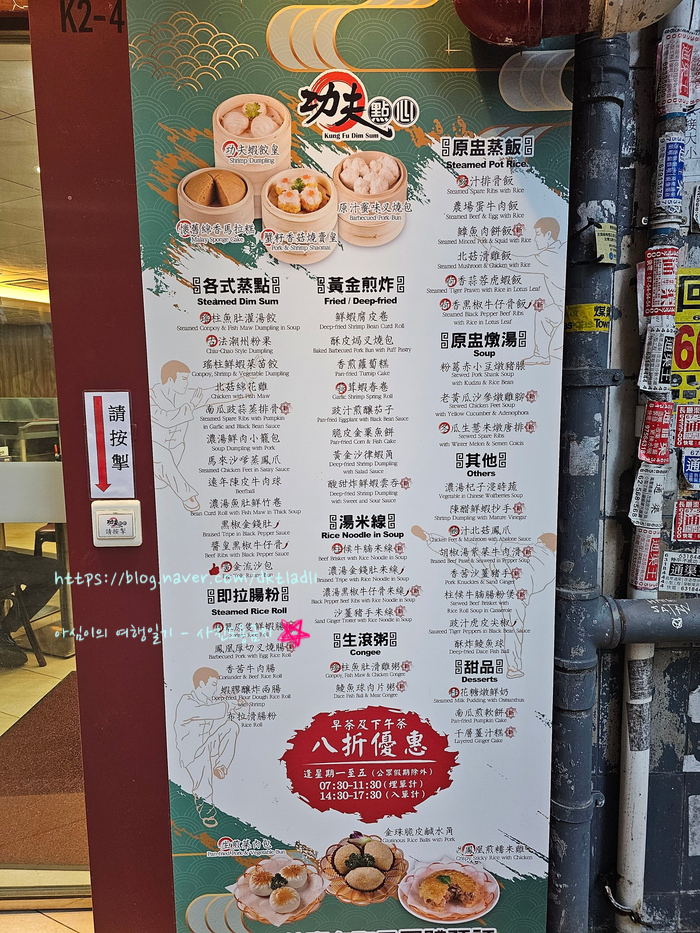 K2-4
功夫點心
Kung Fu Dim Sum
功夫蝦餃皇
Shrimp Dumpling
懷舊綿香馬拉糕
Malay Sponge Cake
蟹籽香菇燒賣皇
Pork & Shrimp Shaomai
原汁蜜味叉燒包
Barbecued Pork Bun
原盅蒸飯
Steamed Pot Rice
豉汁排骨飯
Steamed Spare Ribs with Rice
農場蛋牛肉飯
Steamed Beef & Egg with Rice
鱆魚肉餅飯
Steamed Minced Pork & Squid with Rice
北菇滑雞飯
Steamed Mushroom & Chicken with Rice
香蒜蓉虎蝦飯
Steamed Tiger Prawn with Rice in Lotus Leaf
香黑椒牛仔骨飯
Steamed Black Pepper Beef Ribs
with Rice in Lotus Leaf
原盅燉湯
Soup
粉葛赤小豆燉豬𦟌
Stewed Pork Shank Soup
with Kudzu & Rice Bean
老黃瓜沙參燉雞腳
Stewed Chicken Feet Soup
with Yellow Cucumber & Adenophora
冬瓜生薏米燉唐排
Stewed Spare Ribs with
Winter Melon & Semen Coicis
其他
Others
濃湯杞子浸時蔬
Vegetable in Chinese Wolfberries Soup
陳醋鮮蝦抄手
Shrimp Dumpling with Mature Vinegar
鮑汁北菇鳳爪
Chicken Feet & Mushroom with Abalone Sauce
胡椒湯紫菜牛肉滑
香茜沙薑豬手
柱候牛腩腸粉煲
Stewed Beef Brisket with
Rice Roll Soup in Casserole
豉汁虎皮尖椒
Steamed Tiger Peppers in Black Bean Sauce
酥炸鯪魚球
Deep-fried Dace Fish Ball
甜品
Desserts
桂花糖燉鮮奶
Steamed Milk Pudding with Osmanthus
南瓜煎軟餅
千層薑汁糕
Layered Ginger Cake
各式蒸點
Steamed Dim Sum
瑤柱魚肚灌湯餃
Steamed Conpoy & Fish Maw Dumpling in Soup
古法潮州粉果
Chiu-Chao Style Dumpling
瑤柱鮮蝦菜苗餃
Conpoy, Shrimp & Vegetable Dumpling
北菇綿花雞
Chicken with Fish Maw
南瓜豉蒜蒸排骨
Steamed Spare Ribs with Pumpkin
in Garlic and Black Bean Sauce
濃湯鮮肉小籠包
Soup Dumpling with Pork
馬來沙嗲蒸鳳爪
Steamed Chicken Feet in Satay Sauce
遠年陳皮牛肉球
Beefball
濃湯魚肚鮮竹卷
Bean Curd Roll with Fish Maw in Thick Soup
黑椒金錢肚
Braised Tripe in Black Pepper Sauce
醬皇黑椒牛仔骨
Beef Ribs with Black Pepper Sauce
黃金流沙包
即拉腸粉
Steamed Rice Roll
鳳凰厚切叉燒腸
Barbecued Pork with Egg Rice Roll
香茜牛肉腸
Coriander & Beef Rice Roll
蝦膠釀炸兩腸
Deep-fried Flour Dough Rice Roll
with Shrimp
布拉滑腸粉
Rice Roll
黃金煎炸
Fried / Deep-fried
鮮蝦腐皮卷
Deep-fried Shrimp Bean Curd Roll
酥皮焗叉燒包
Baked Barbecued Pork Bun with Puff Pastry
香煎蘿蔔糕
Pan-fried Turnip Cake
蒜茸蝦春卷
Garlic Shrimp Spring Roll
豉汁煎釀茄子
Pan-fried Eggplant with Black Bean Sauce
脆皮金粟魚餅
Pan-fried Corn & Fish Cake
黃金沙律蝦角
Deep-fried Shrimp Dumpling
with Salad Sauce
酸甜炸鮮蝦雲吞
Deep-fried Shrimp Dumpling
with Sweet and Sour Sauce
湯米線
Rice Noodle in Soup
柱候牛腩米線
Beef Brisket with Rice Noodle in Soup
濃湯金錢肚米線
Braised Tripe with Rice Noodle in Soup
濃湯黑椒牛仔骨米線
Black Pepper Beef Ribs with Rice Noodle in Soup
沙薑豬手米線
Sand Ginger Trotter with Rice Noodle in Soup
生滾粥
Congee
瑤柱魚肚滑雞粥
Conpoy, Fish Maw & Chicken Congee
鯪魚球肉片粥
Dace Fish Ball & Meat Congee
早茶及下午茶
八折優惠
逢星期一至五 (公眾假期除外)
07:30-11:30 (埋單計)
14:30-17:30 (入單計)
生煎菜肉包
Pan-fried Pork & Vegetable Bun
金珠脆皮鹹水角
Glutinous Rice Balls with Pork
鳳凰煎糯米雞
Crispy Sticky Rice with Chicken
請按掣
請按掣
https://blog.naver.com/dktladl1
아심이의 여행일기 -